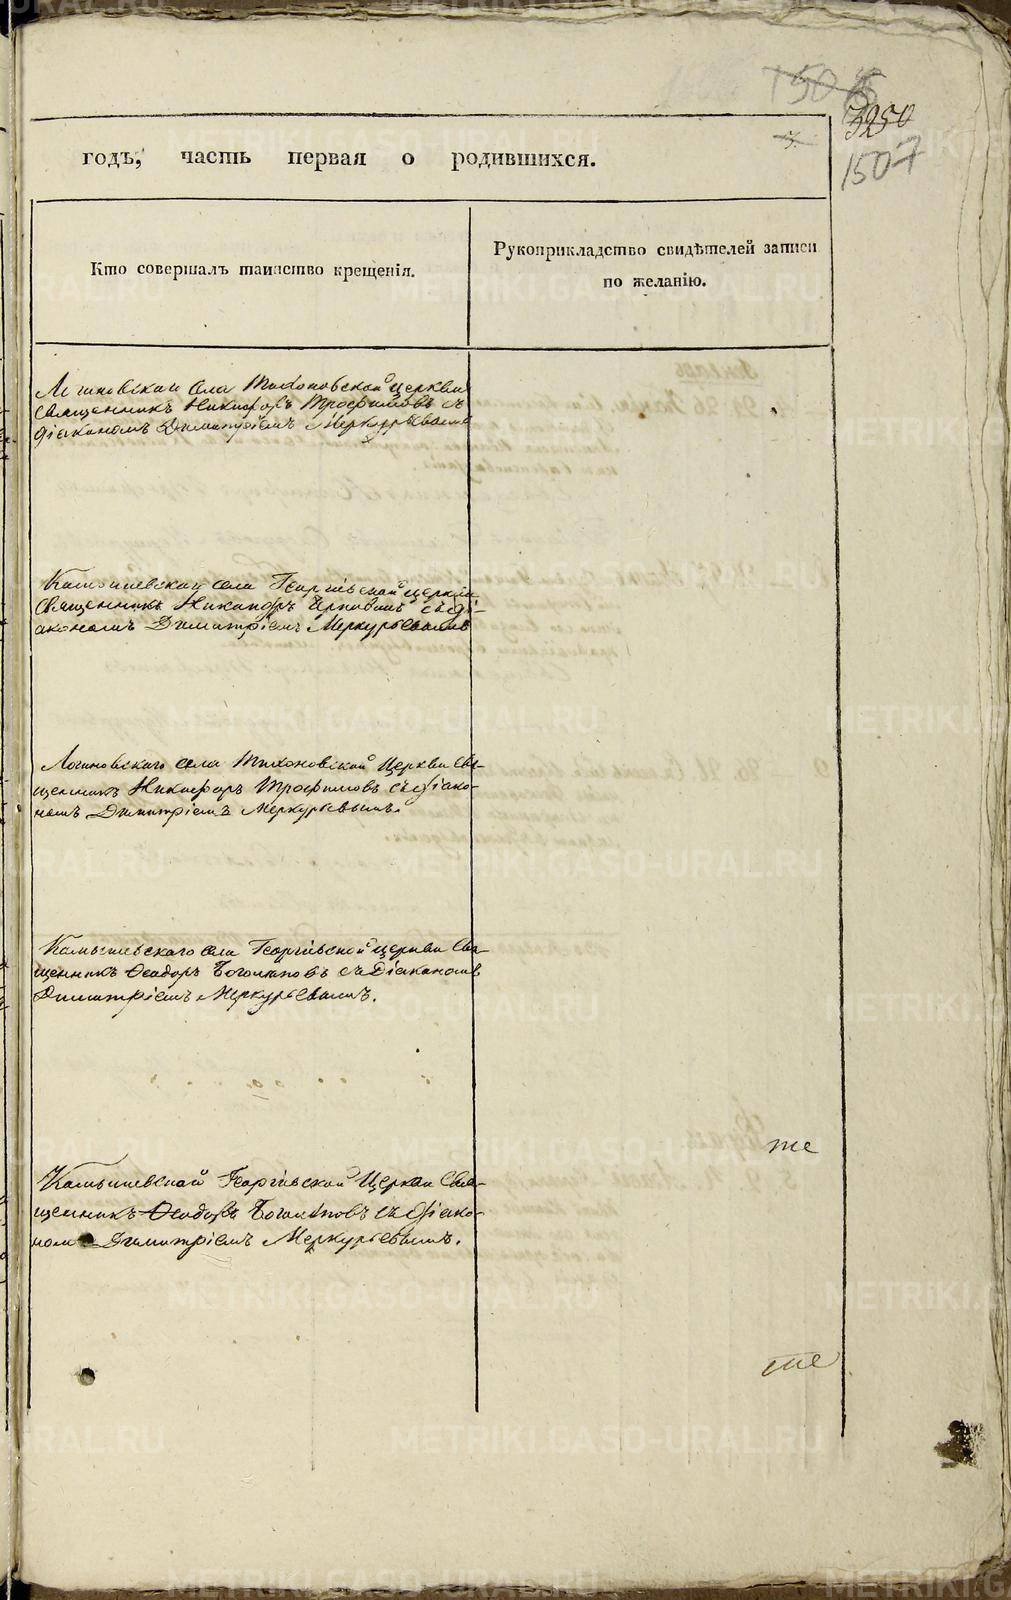 3250
1507
годъ, часть первая о родившихся.
Кто совершалъ таинство крещенія.
Рукоприкладство свидѣтелей записи
по желанію.
Логиновскаго села Тихоновской церкви
священникъ Никифоръ Трофимовъ съ
діакономъ Димитріемъ Меркурьевымъ
Камышевскаго села Георгіевской церкви
священникъ Никаноръ съ ді-
акономъ Димитріемъ Меркурьевымъ
Логиновскаго села Тихоновской Церкви Свя-
щенникъ Никифоръ Трофимовъ съ діако-
номъ Димитріемъ Меркурьевымъ.
Камышевскаго села Георгіевской церкви Свя-
щенникъ Ѳеодоръ Боголѣповъ съ Діакономъ
Димитріемъ Меркурьевымъ.
Камышевской Георгіевской Церкви Свя-
щенникъ Ѳеодоръ Боголѣповъ съ діако-
номъ Димитріемъ Меркурьевымъ.
METRIKI.GASO-URAL.RU